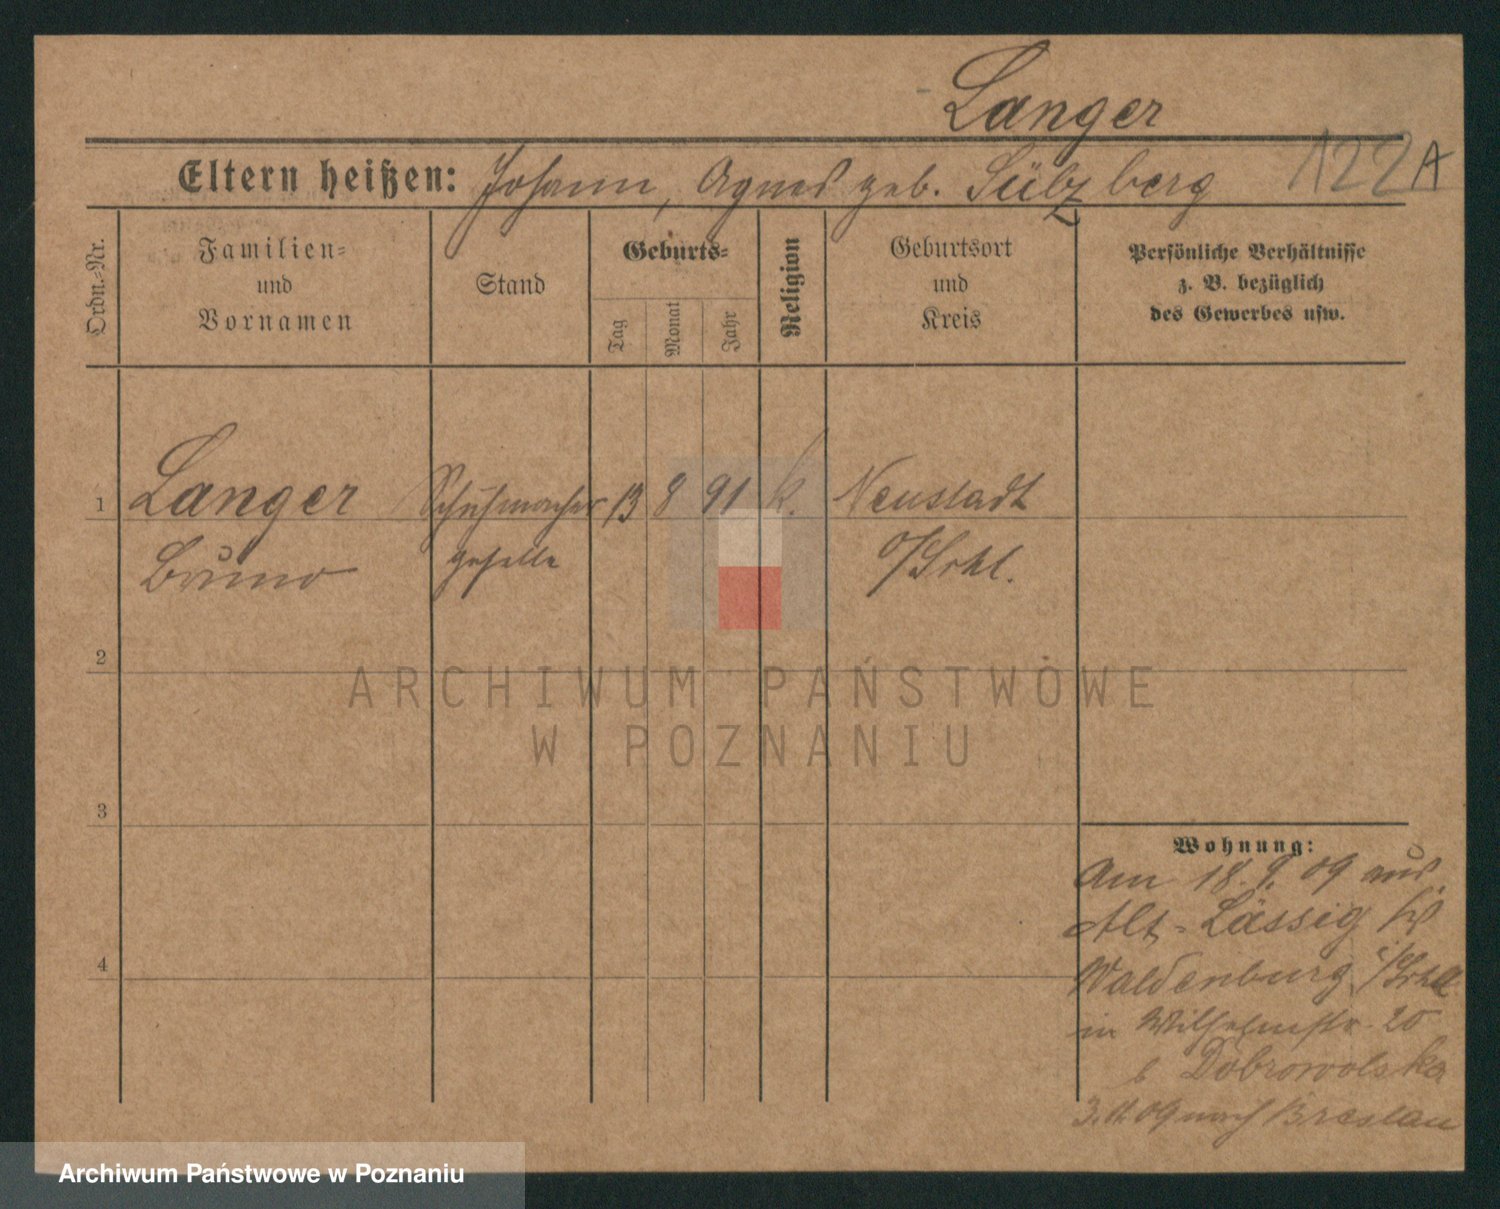 Langer
Eltern heißen: Johann, Agnes geb. Sülzberg 122A
Ordn.-Nr.
Familien-
und
Vornamen
Stand
Geburts-
Tag
Monat
Jahr
Religion
Geburtsort
und
Kreis
Persönliche Verhältnisse
z. B. bezüglich
des Gewerbes usw.
1 Langer Schuhmacher 13 8 91 k. Neustadt
Bruno geselle O/Schl.
2
3
4
Wohnung:
Am 18. 9. 09 aus
Alt-Lässig
Waldenburg i/Schl.
in Wilhelmstr. 20
b Dobrowolska
09 nach Breslau
ARCHIWUM PAŃSTWOWE
W POZNANIU
Archiwum Państwowe w Poznaniu